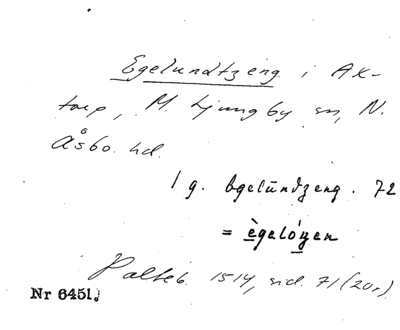 Egelundtzeng i Ax-
torp, M. Ljungby sn, N.
Åsbo hd.
1 g. Egelundzeng. 72
= ègelóṉen
Palteb. 1514, sid. 71 (20r).
Nr 6451.